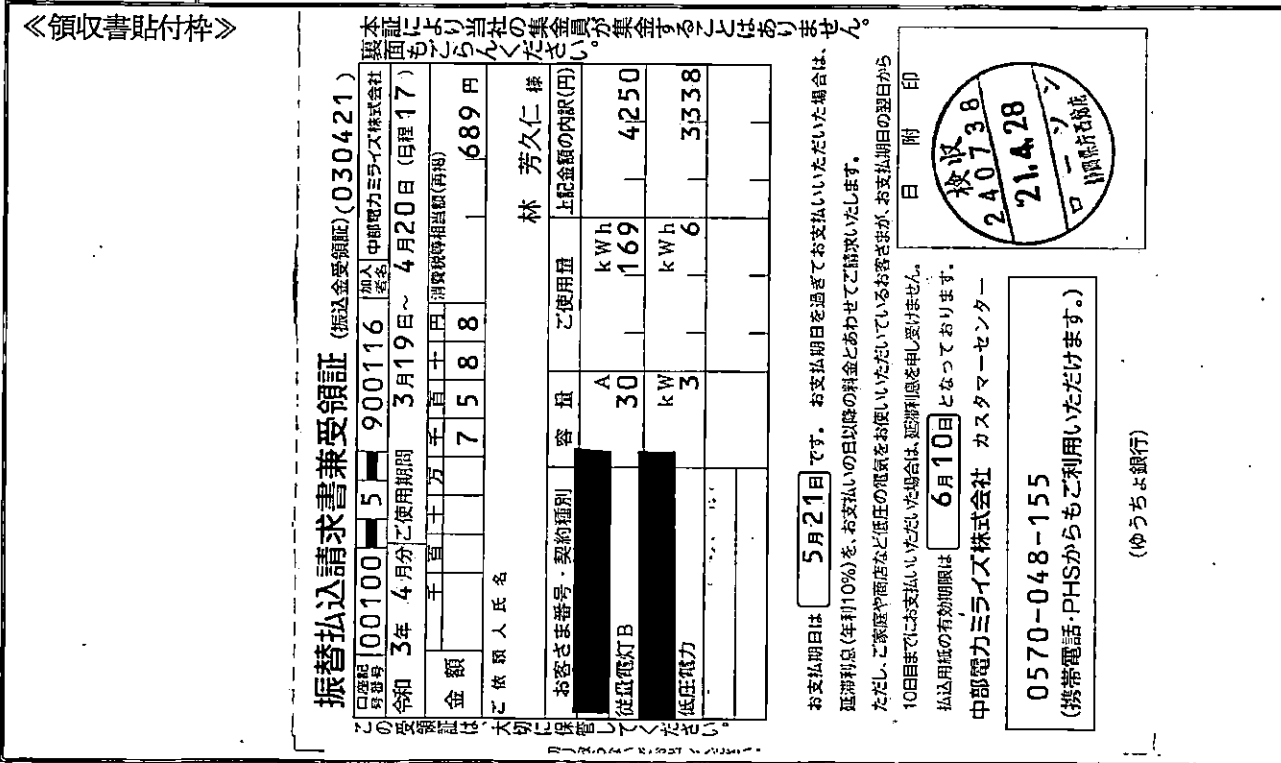 ≪領収書貼付枠≫
本証により当社の集金員が集金することはありません。
裏面もごらんください。
振替払込請求書兼受領証 (振込金受領証)(030421)
口座記号番号 00100 5 900116 加入者名 中部電力ミライズ株式会社
令和 3年 4月分 ご使用期間 3月19日~ 4月20日 (日程17)
金額 千百十万千百十円 7588 消費税等相当額(再掲) 689円
ご依頼人氏名
林 芳久仁 様
お客さま番号・契約種別 容量 ご使用量 上記金額の内訳(円)
従量電灯B 30 A 169 kWh 4250
低圧電力 3 kW 6 kWh 3338
この受領証は、大切に保管してください。
お支払期日は 5月21日 です。お支払期日を過ぎてお支払いいただいた場合は、
延滞利息(年利10%)を、お支払いの日以降の料金とあわせてご請求いたします。
ただし、ご家庭や商店など低圧の電気をお使いいただいているお客さまが、お支払期日の翌日から
10日目までにお支払いいただいた場合は、延滞利息を申し受けません。
払込用紙の有効期限は 6月10日 となっております。
中部電力ミライズ株式会社 カスタマーセンター
0570-048-155
(携帯電話・PHSからもご利用いただけます。)
(ゆうちょ銀行)
日附印
検収
240738
21.4.28
ローソン